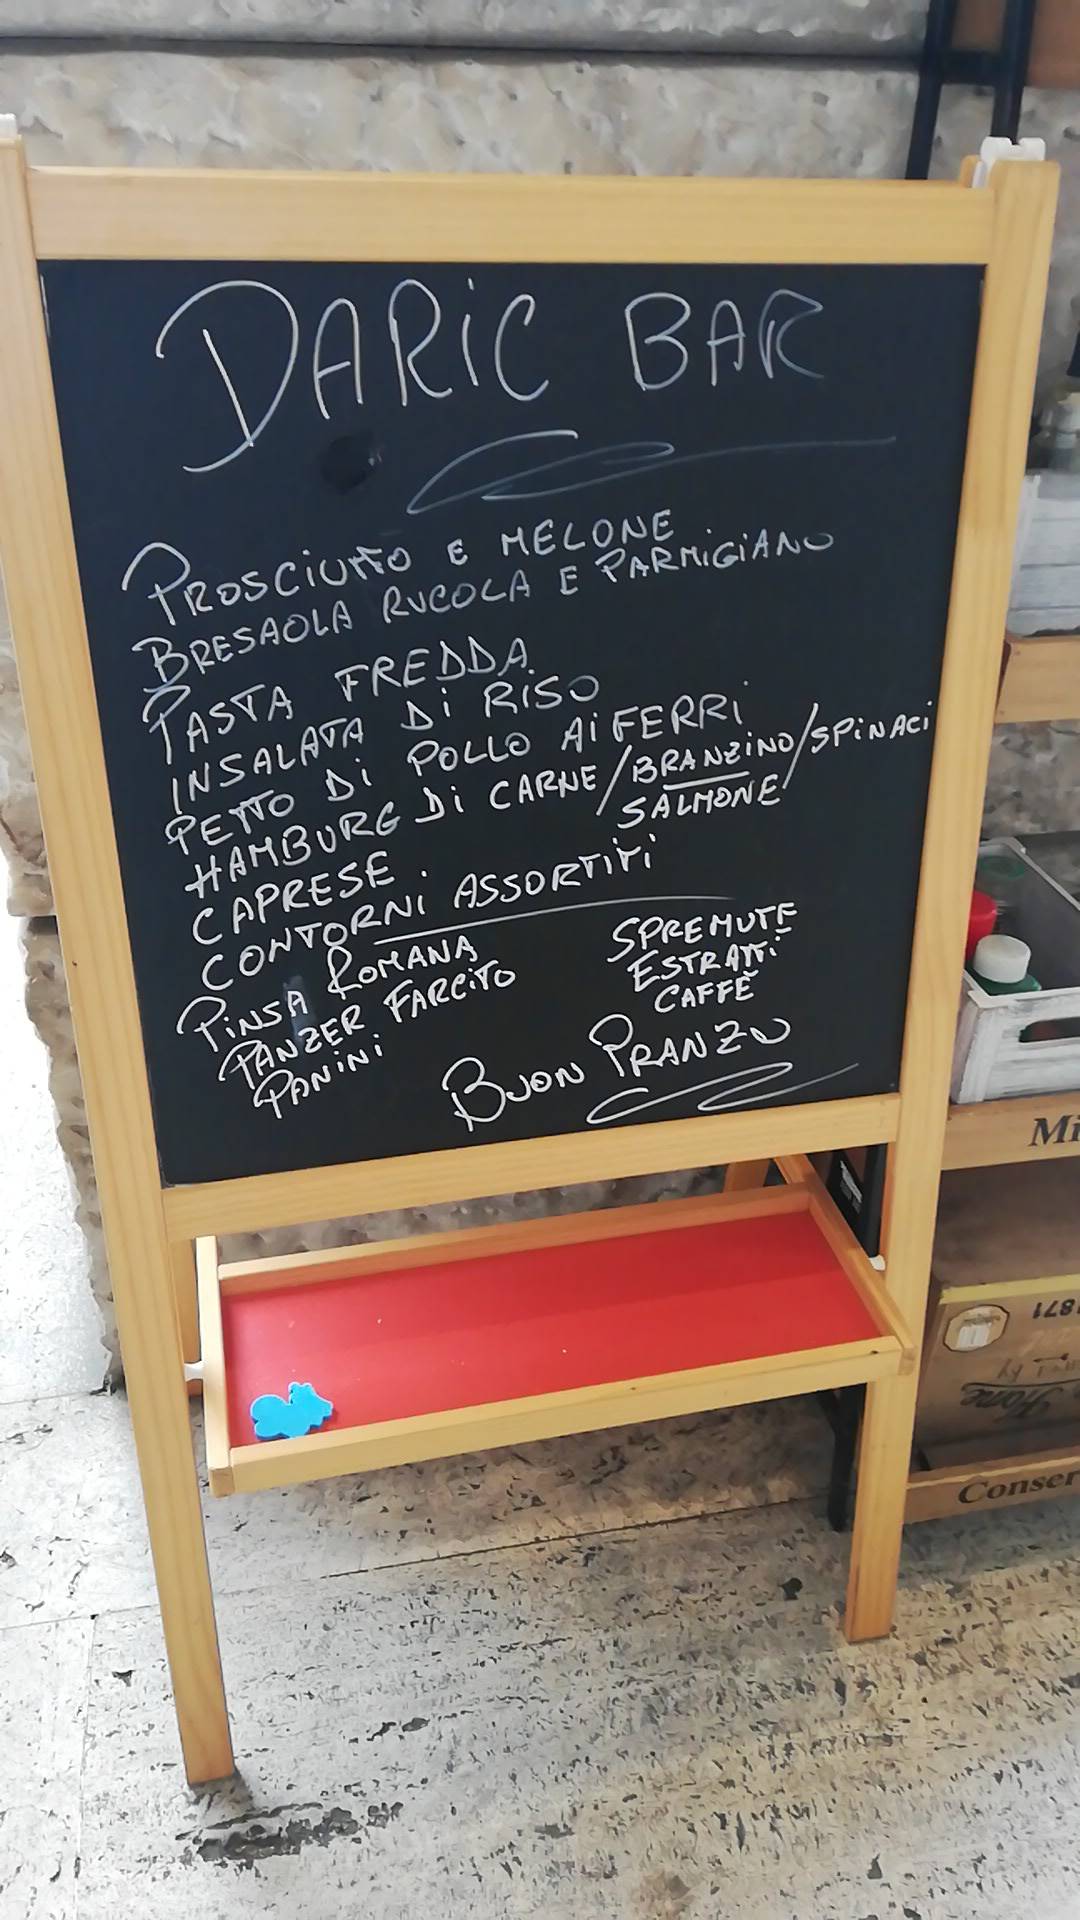 DARiC BAR
PROSCIUTTO E MELONE
BRESAOLA RUCOLA E PARMIGIANO
PASTA FREDDA
INSALATA Di RISO
PETTO Di POLLO Ai FERRi
HAMBURG Di CARNE/BRANZINO/SPiNACi
SALMONE
CAPRESE.
CONTORNi ASSORTiTi
PiNSA ROMANA
PANZER FARCiTO
PANiNi
SPREMUTE
ESTRATTi
CAFFÈ
BUON PRANZO
Mi
1871
Home
Conser